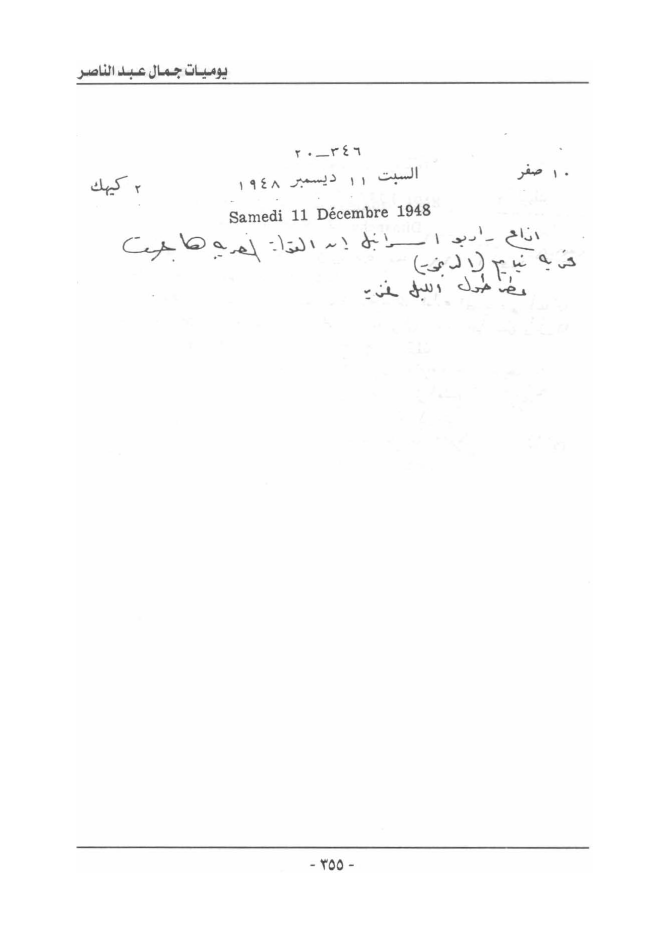 يوميات جمال عبد الناصر
٣٤٦ـ٢٠
١٠ صفر
السبت ١١ ديسمبر ١٩٤٨
٢ كيهك
Samedi 11 Décembre 1948
اذاع راديو اسرائيل ان القوات المصريه هاجمت
قريه نيريم (الدنجور)
مطر طول الليل
- ٣٥٥ -